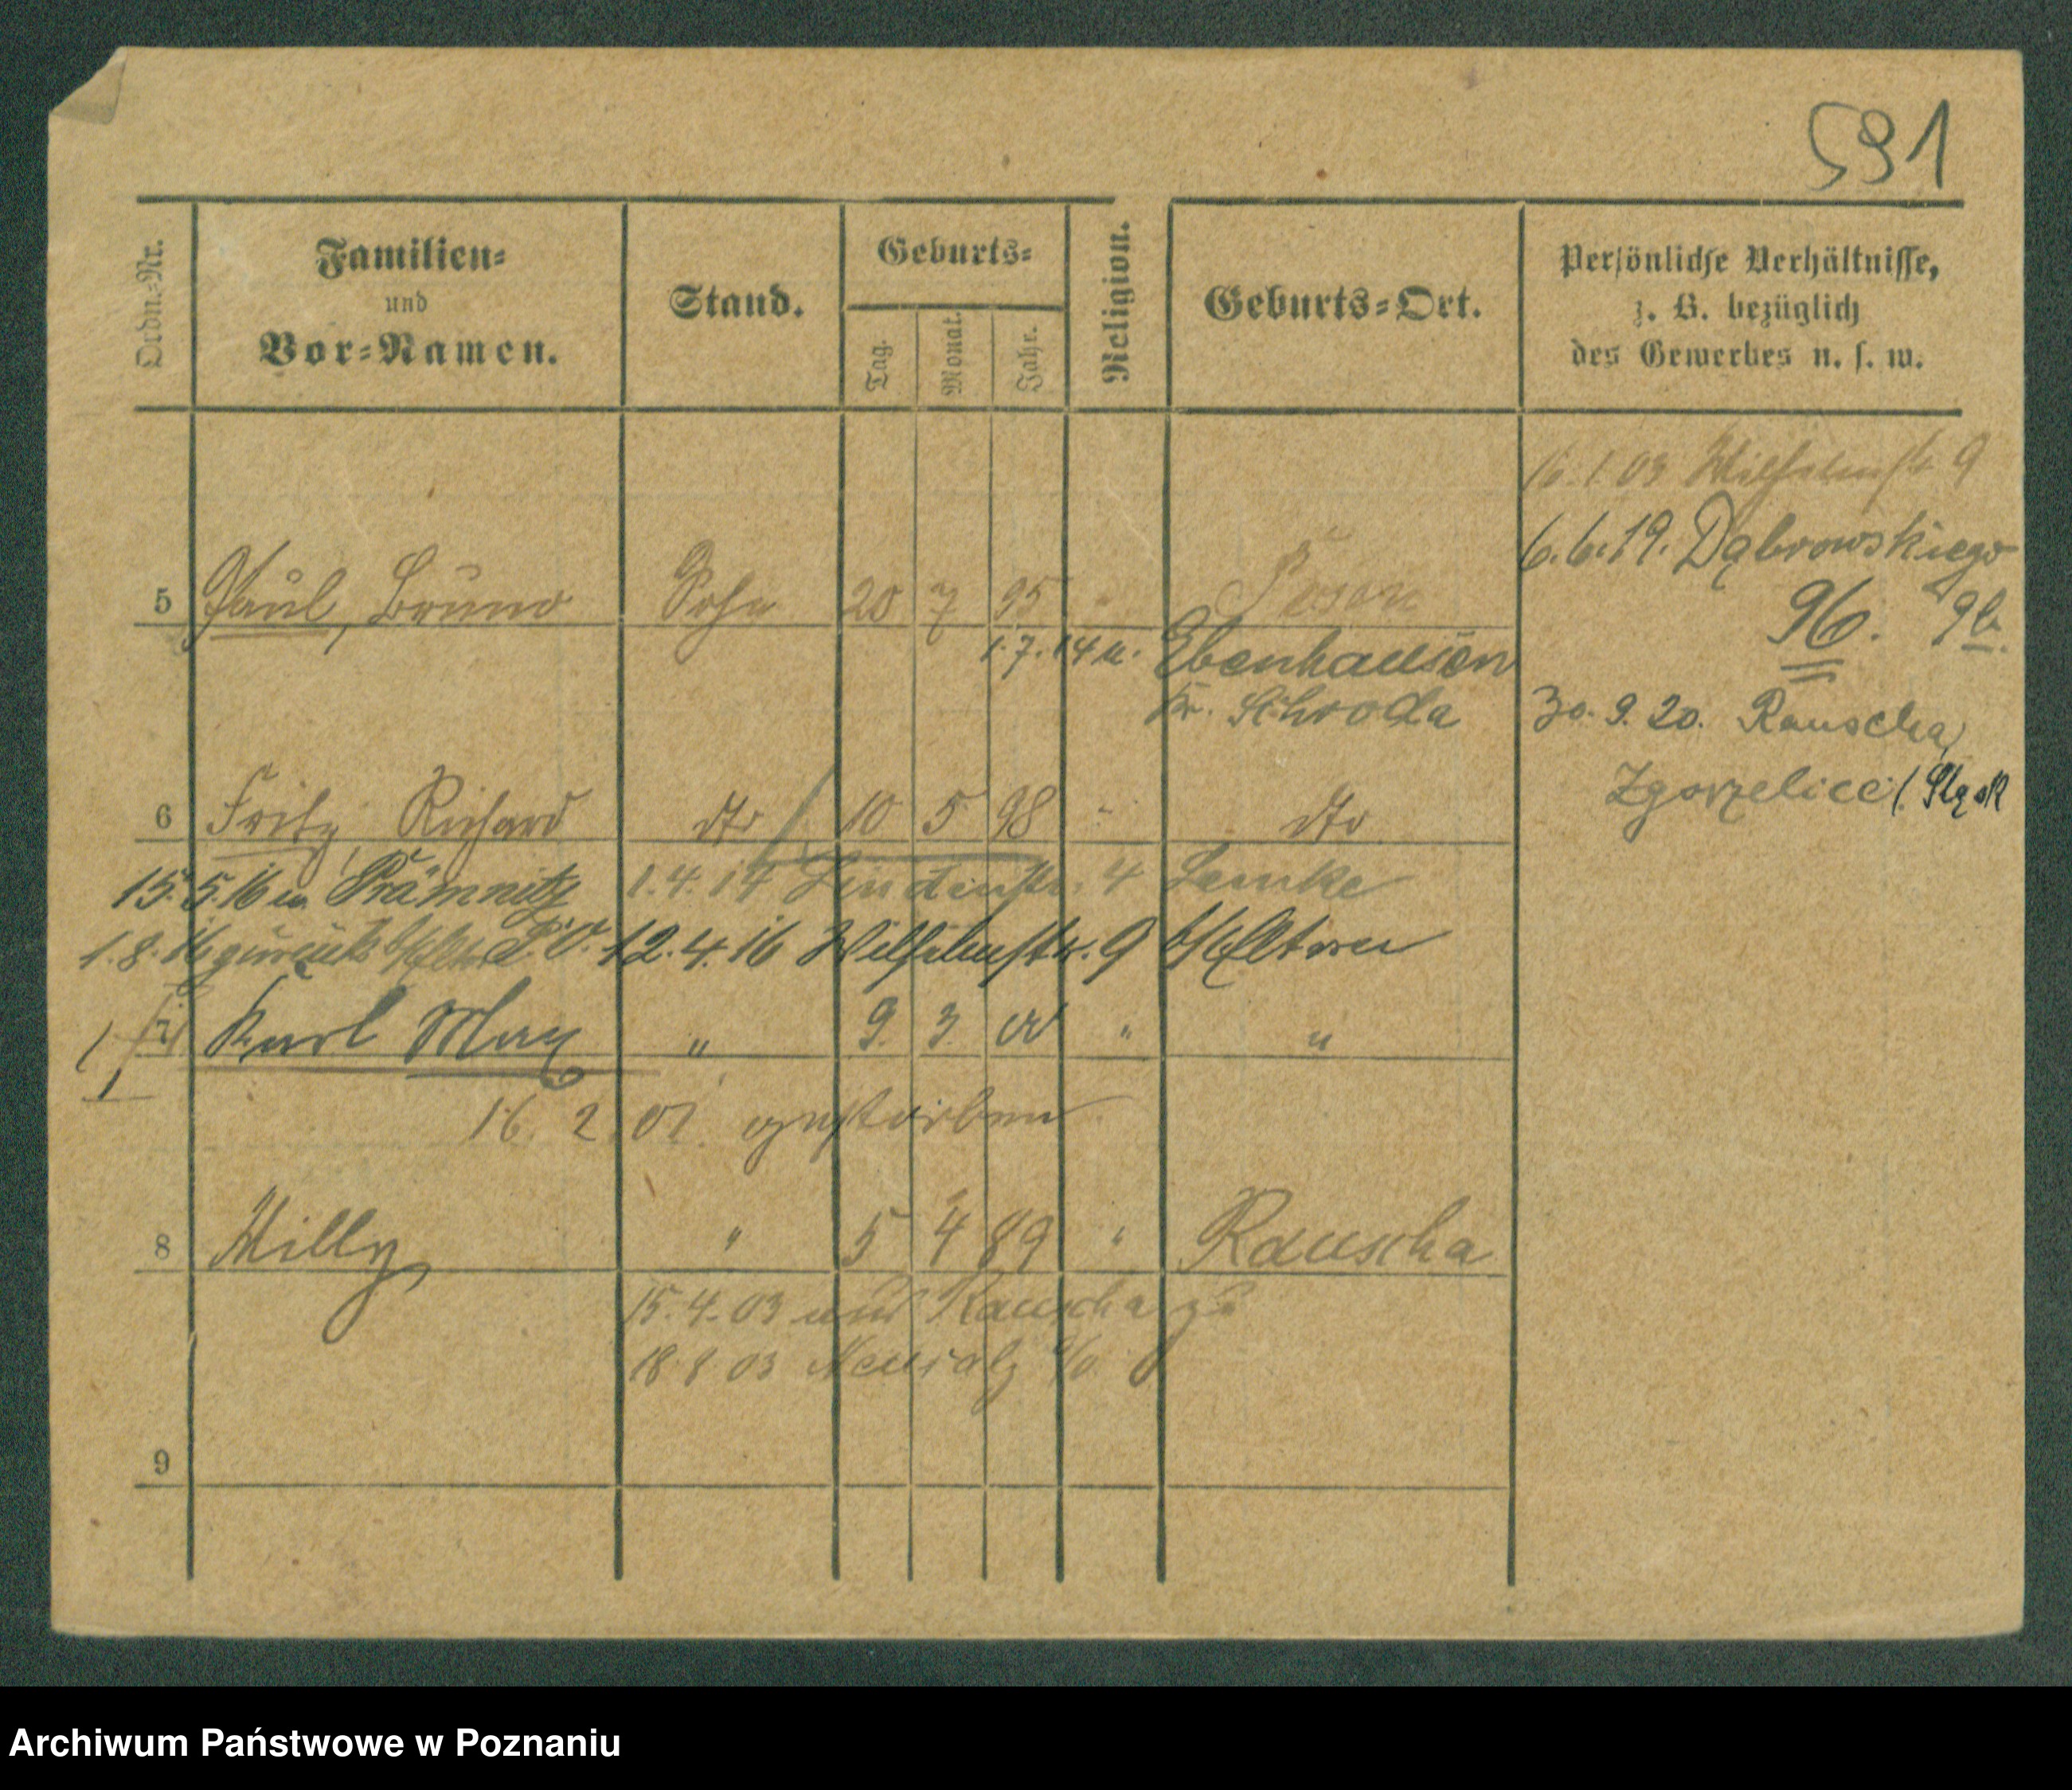 591
Ordn.-Nr.
Familien-
und
Vor-Namen.
Stand.
Geburts-
Tag.
Monat.
Jahr.
Religion.
Geburts-Ort.
Persönliche Verhältnisse,
z. B. bezüglich
des Gewerbes u. s. w.
16.1.03 Wilhelmstr. 9
6.6.19. Dąbrowskiego
96.
5 Paul, Bruno Sohn 20 7 95 " Posen
1.7.14 n. Ebenhausen
Kr. Schroda
30.9.20. Rauscha,
Zgorzelice (Śląsk
6 Fritz, Richard dto 10 5 98 " dto
15.5.16 n. Prämnitz 1.4.14 Lindenstr. 4 Lemke
1.8.16 zurück b/Eltern 12.4.16 Wilhelmstr. 9 b/Eltern
7 Karl Max " 9. 3 00 " "
16.2.01. gestorben
8 Willy " 5 4 89 " Rauscha
15.4.03 Rauscha zu
18.8.03 Neusalz a/O.
9
Archiwum Państwowe w Poznaniu